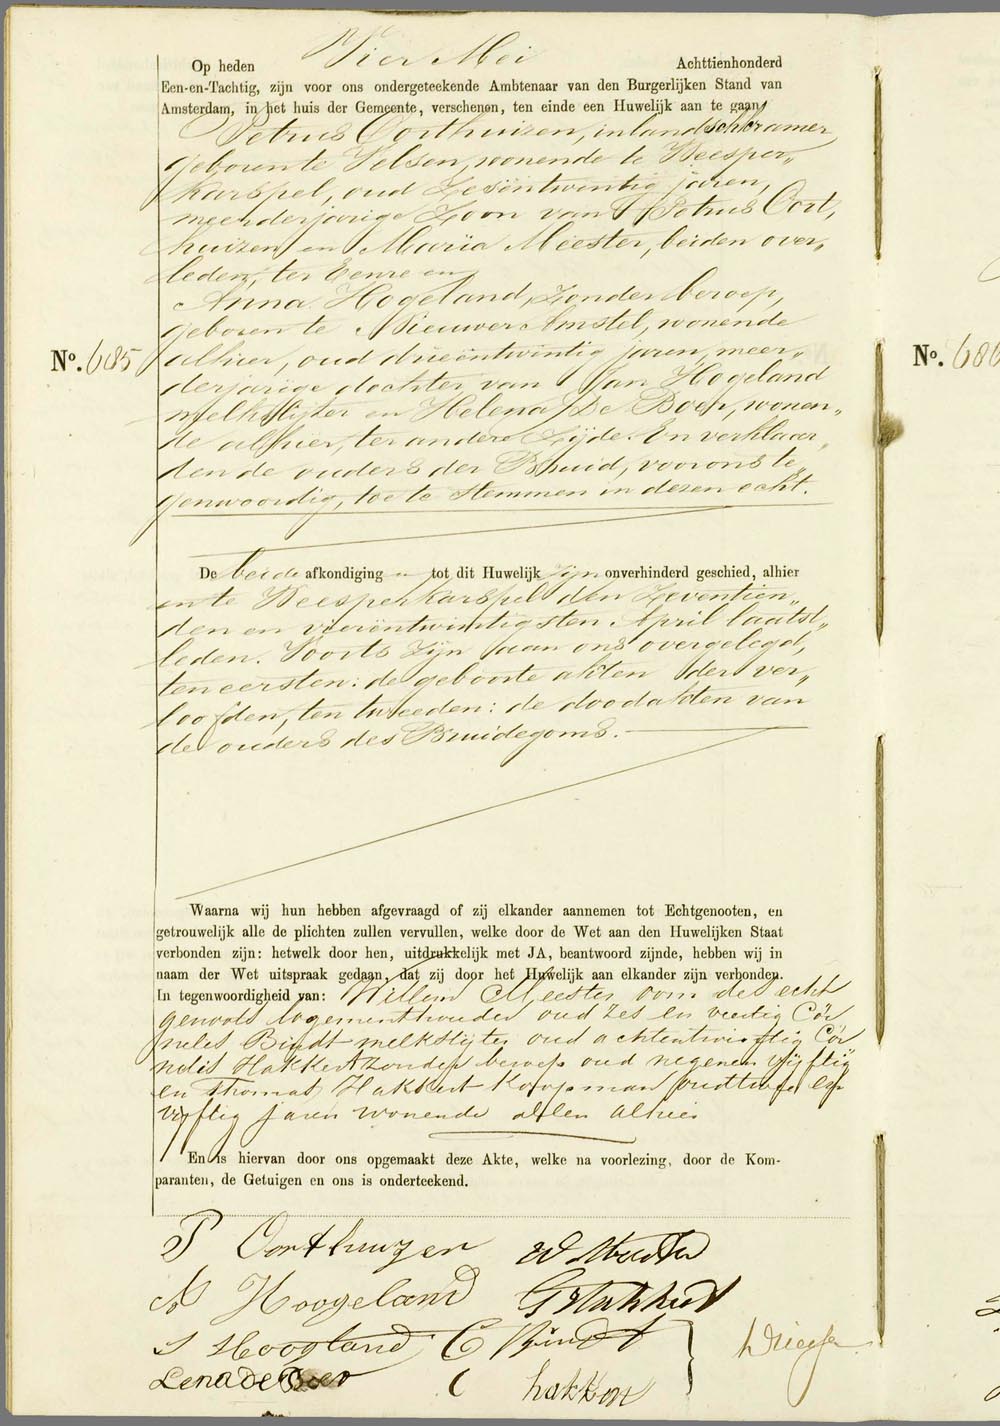 Op heden Vier Mei Achttienhonderd
Een-en-Tachtig, zijn voor ons ondergeteekende Ambtenaar van den Burgerlijken Stand van
Amsterdam, in het huis der Gemeente, verschenen, ten einde een Huwelijk aan te gaan,
Petrus Oorthuizen, inlandschkramer
geboren te Velsen, wonende te Weesper„
karspel, oud Zesëntwintig jaren,
meerderjarige Zoon van Petrus Oort„
huizen en Maria Meester, beiden over„
leden, ter Eenre en
Anna Hogeland, Zonder beroep,
geboren te Nieuwer Amstel, wonende
No. 685 alhier, oud drieëntwintig jaren, meer„
No. 686
derjarige dochter van Jan Hogeland
melkslijter en Helena De Boer, wonen„
de alhier, ter andere Zijde. En verklaar„
den de ouders der Bruid, voor ons te„
genwoordig, toe te stemmen in dezen echt.
De beide afkondigingen tot dit Huwelijk zijn onverhinderd geschied, alhier
en te Weesperkarspel den Zeventien„
den en vierëntwintigsten April laatst„
leden. Voorts zijn aan ons overgelegd,
ten eersten: de geboorte akten der ver„
loofden, ten tweeden: de doodakten van
de ouders des Bruidegoms.
Waarna wij hun hebben afgevraagd of zij elkander aannemen tot Echtgenooten, en
getrouwelijk alle de plichten zullen vervullen, welke door de Wet aan den Huwelijken Staat
verbonden zijn: hetwelk door hen, uitdrukkelijk met JA, beantwoord zijnde, hebben wij in
naam der Wet uitspraak gedaan, dat zij door het Huwelijk aan elkander zijn verbonden.
In tegenwoordigheid van: Willem Meester oom des echt
genoots logementhouder oud zes en veertig Cor
nelis Bindt melkslijter oud achtentwintig Cor
nelis Hakkert zonder beroep oud negen en vijftig
en Thomas Hakkert Koopman oud twee en
vijftig jaren wonende allen alhier
En is hiervan door ons opgemaakt deze Akte, welke na voorlezing, door de Kom-
paranten, de Getuigen en ons is onderteekend.
P Oorthuyzen W Meester
A Hoogeland Hakkert
J Hoogland C Bindt
Lena de Boer C hakkert